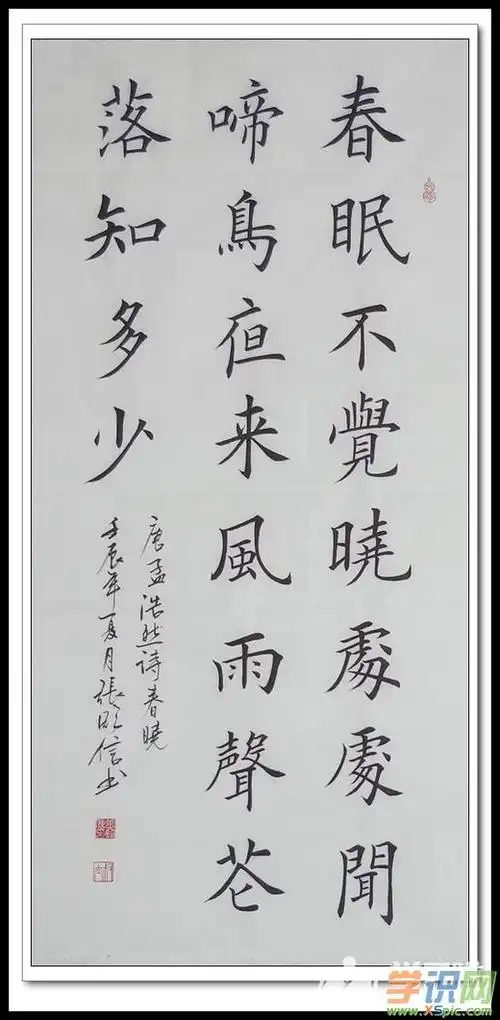 春眠不覺曉處處聞
啼鳥亱来風雨聲花
落知多少
唐孟浩然詩春曉
壬辰年夏月張明信书
学识网
www.XSpic.com